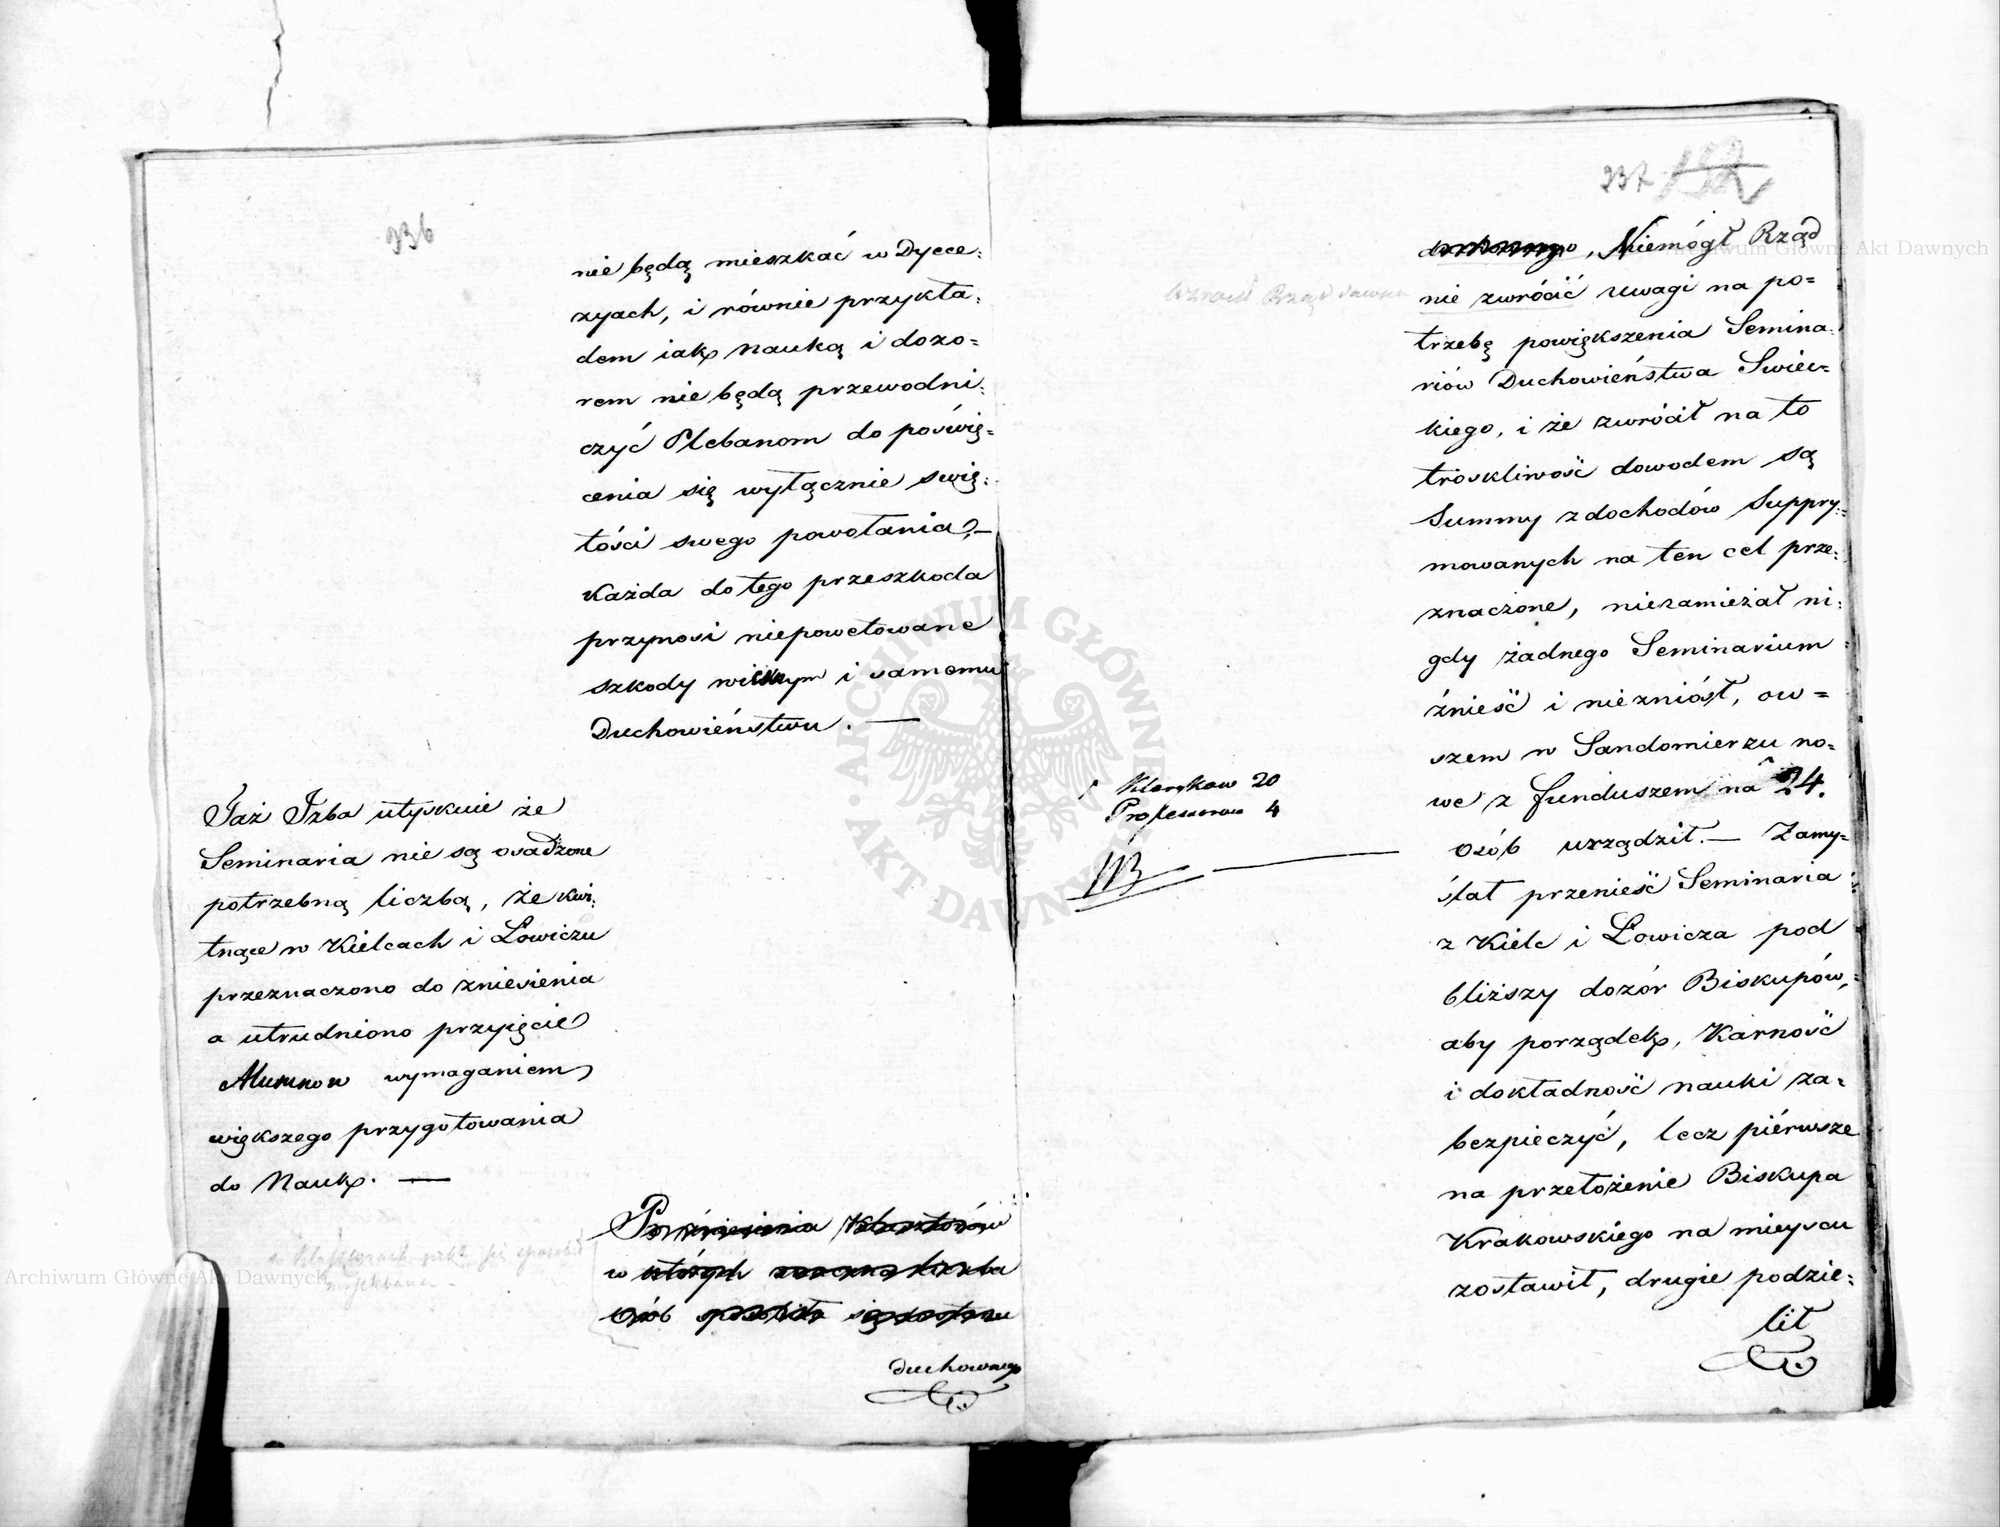 236
nie będą mieszkać w Dyece:
zyach, i równie przykła:
dem iak nauką i dozo=
rem nie będą przewodni:
czyć Plebanom do poświę=
cenia się wyłącznie swię:
tości swego powołania,—
Każda do tego przeszkoda
przynosi niepowetowane
szkody wiernym i samemu
Duchowieństwu. —
Taż Izba utyskuie że
Seminaria nie są osadzone
potrzebną liczbą, że kwi:
tnące w Kielcach i Łowiczu
przeznaczono do zniesienia
a utrudniono przyięcie
Alumnow wymaganiem
większego przygotowania
do Nauk. —
w Klasztorach
Po zniesienia Klasztorów
w których znaczna liczba
Osób sposobiła się do stanu
duchownego
237
duchownego, Niemógł Rząd
nie zwrócić uwagi na po=
trzebę powiększenia Semina:
riów Duchowieństwa Swiec=
kiego, i że zwrócił na to
troskliwość dowodem są
Summy z dochodów Suppry:
mowanych na ten cel prze:
znaczone, niezamierzał ni:
gdy żadnego Seminarium
znieść i niezniósł, ow=
szem w Sandomierzu no=
we z funduszem na 24.
osób urządził. — Zamy=
ślał przenieść Seminaria
z Kielc i Łowicza pod
bliższy dozór Biskupów,
aby porządek, Karność
i dokładność nauki za=
bezpieczyć, lecz piérwsze
na przełożenie Biskupa
Krakowskiego na mieyscu
zostawił, drugie podzie:
lił
Klerykow 20
Professorow 4
Archiwum Główne Akt Dawnych
Archiwum Główne Akt Dawnych
ARCHIWUM GŁÓWNE AKT DAWNYCH